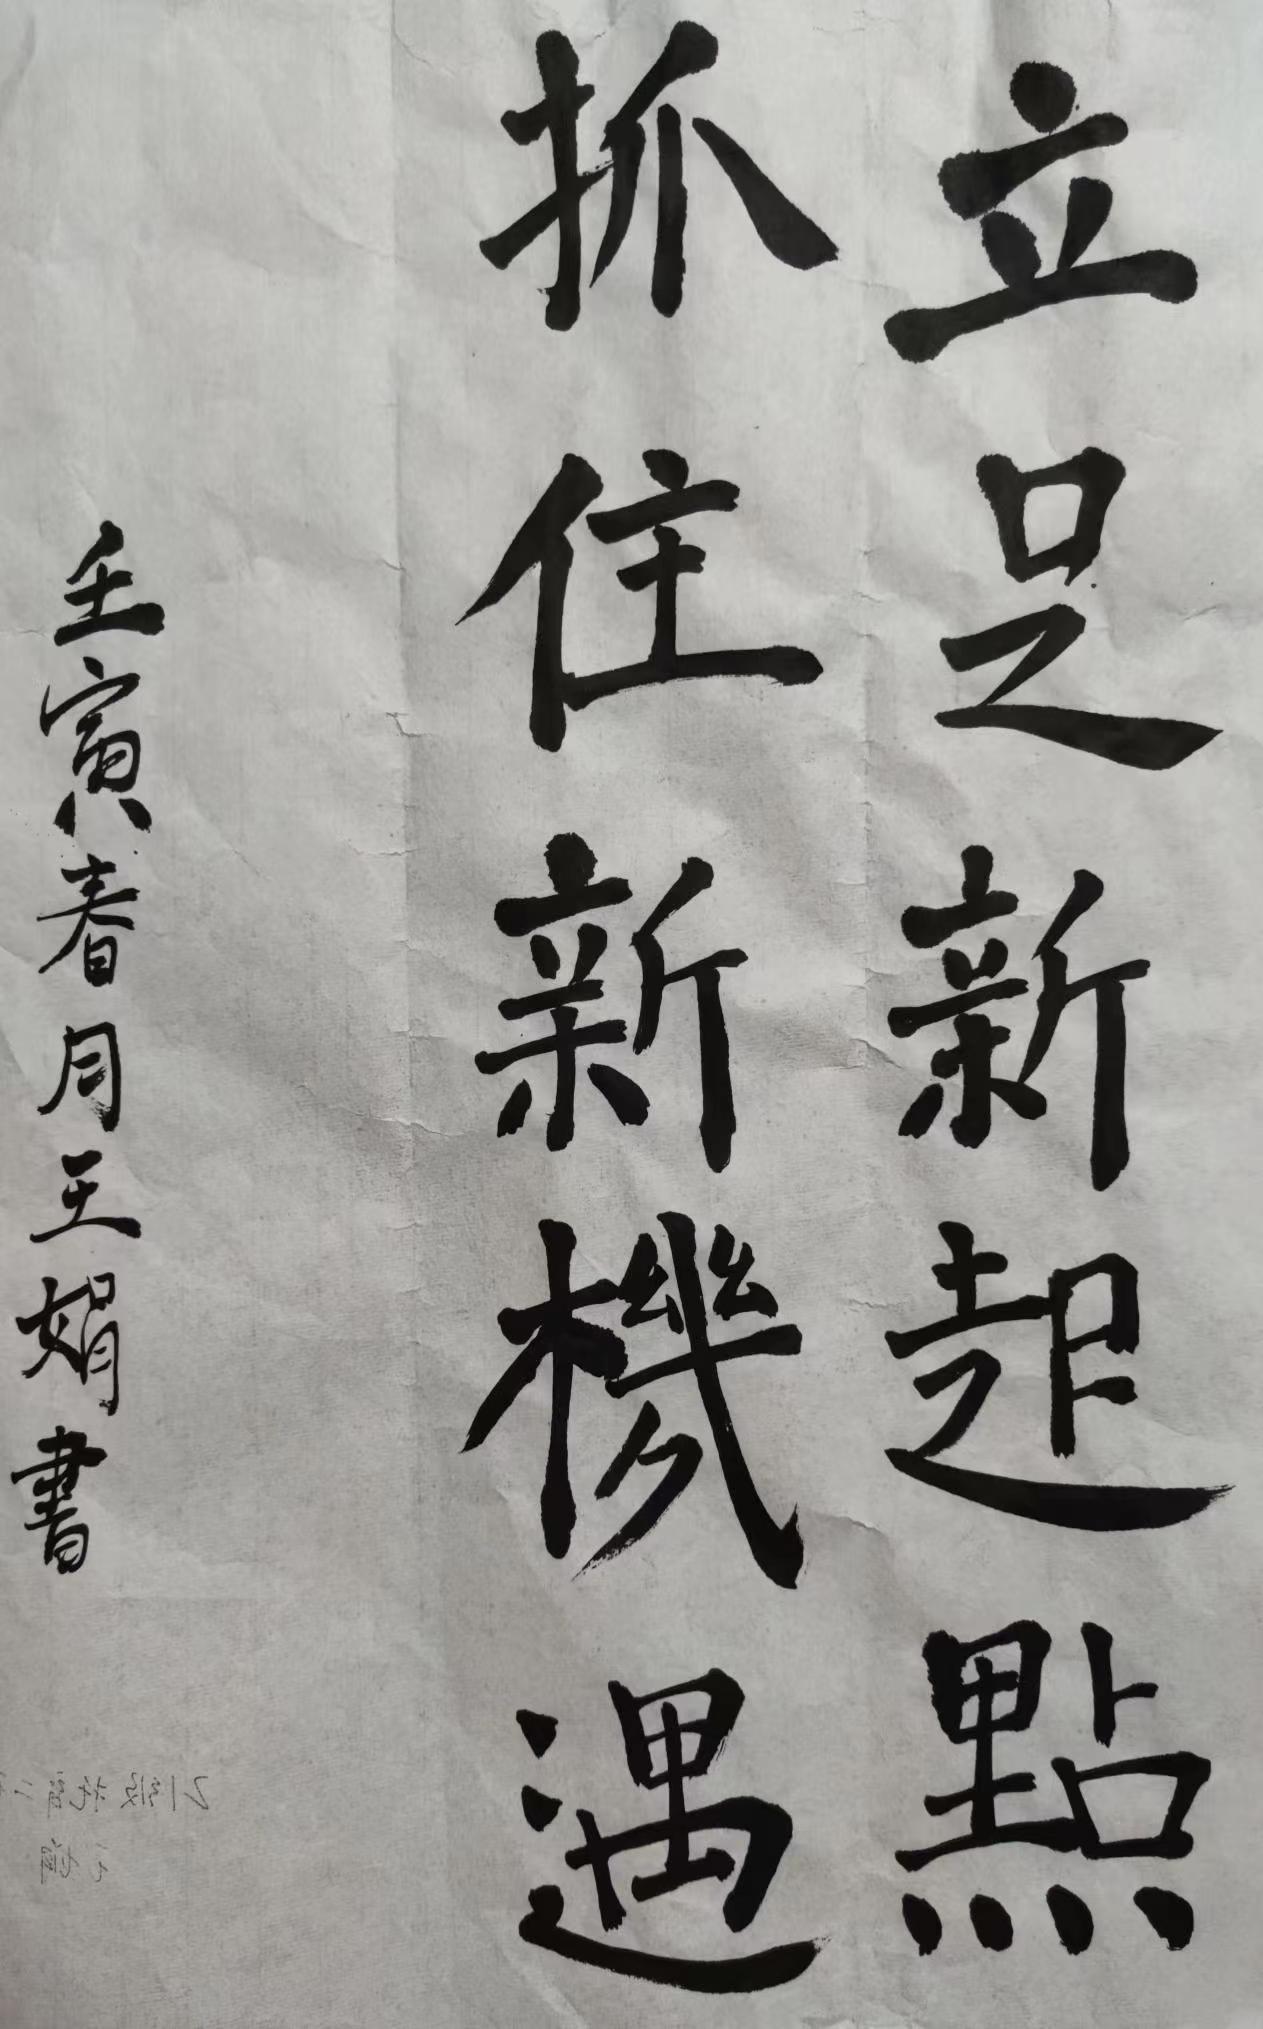 立足新起點
抓住新機遇
壬寅春月王娟書